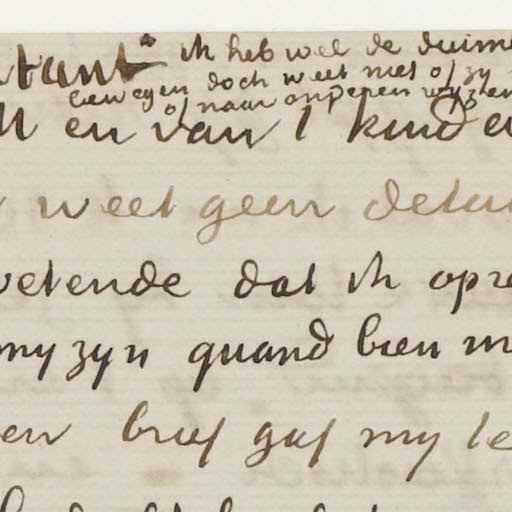 tant ik heb wel de duime
bewegen doch weet niet of zy
of naar onperen wyzen
en van 1 kind en
weet geen detail
wetende dat ik opre
my zyn quand bien m
en brief gaf my le